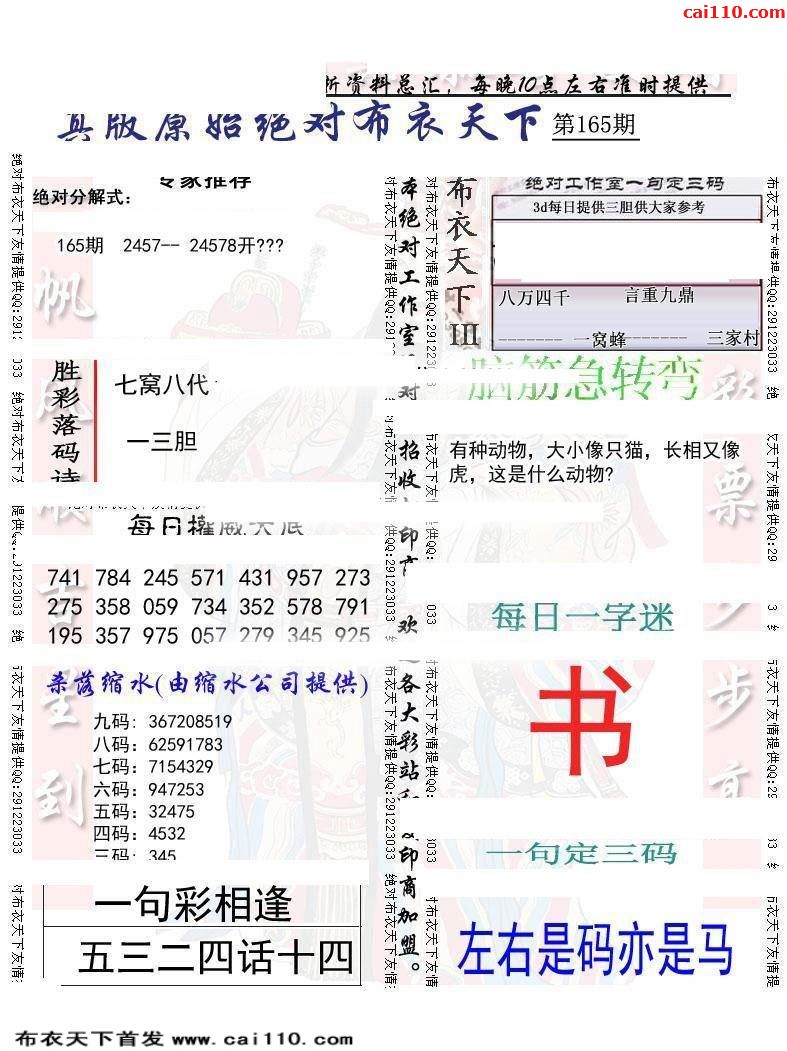 cai110.com
所资料总汇，每晚10点左右准时提供
真版原始绝对布衣天下 第165期
专家推荐
绝对分解式：
165期 2457-- 24578开???
胜彩落码诗
七窝八代
一三胆
每日权威大底
741 784 245 571 431 957 273
275 358 059 734 352 578 791
195 357 975 057 279 345 925
杀落缩水(由缩水公司提供)
九码: 367208519
八码: 62591783
七码: 7154329
六码: 947253
五码: 32475
四码: 4532
三码: 345
一句彩相逢
五三二四话十四
本绝对工作室
招收
印商
欢
各大彩站
印商加盟。
布衣天下III
绝对工作室一句定三码
3d每日提供三胆供大家参考
八万四千 言重九鼎
-------- 一窝蜂------- 三家村
脑筋急转弯
有种动物，大小像只猫，长相又像
虎，这是什么动物?
每日一字迷
书
一句定三码
左右是码亦是马
绝对布衣天下友情提供QQ:291223033
帆
风
顺
吉
星
到
彩
票
步
布衣天下首发 www.cai110.com